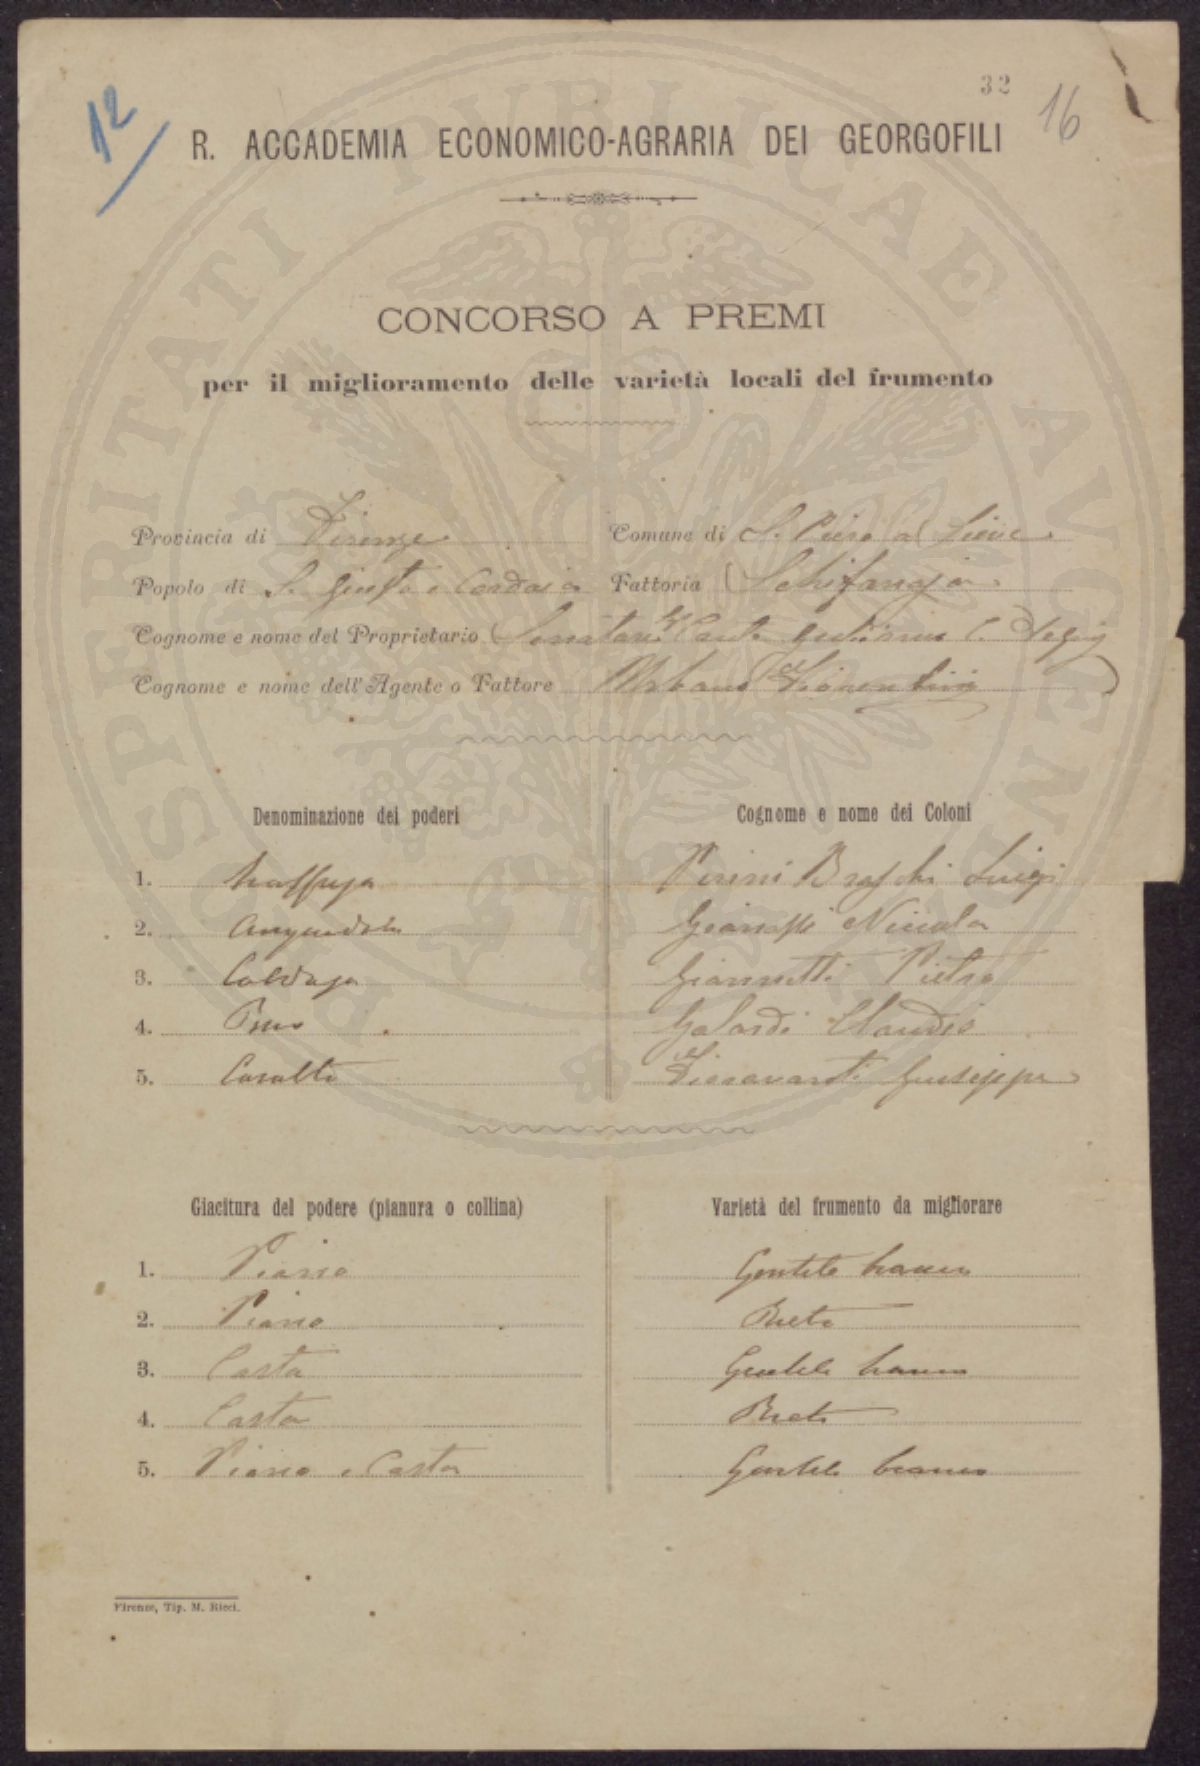 12
32
16
R. ACCADEMIA ECONOMICO-AGRARIA DEI GEORGOFILI
CONCORSO A PREMI
per il miglioramento delle varietà locali del frumento
Provincia di Firenze
Comune di S. Piero a Sieve
Popolo di S. Giusto a
Fattoria Schifanoja
Cognome e nome del Proprietario Senatore Conte Guglielmo
Cognome e nome dell'Agente o Fattore Urbano Fiorentini
Denominazione dei poderi
Cognome e nome dei Coloni
1. Pierini Braschi Luigi
2. Niccola
3. Coldaja Giannetti Pietro
4. Galardi Claudio
5. Casalta Fioravanti Giuseppe
Giacitura del podere (pianura o collina)
Varietà del frumento da migliorare
1. Piano Gentile bianco
2. Piano Rieti
3. Costa Gentile bianco
4. Costa Rieti
5. Piano e Costa Gentile bianco
Firenze, Tip. M. Ricci.
PROSPERITATI PVBLICAE AVGENDAE